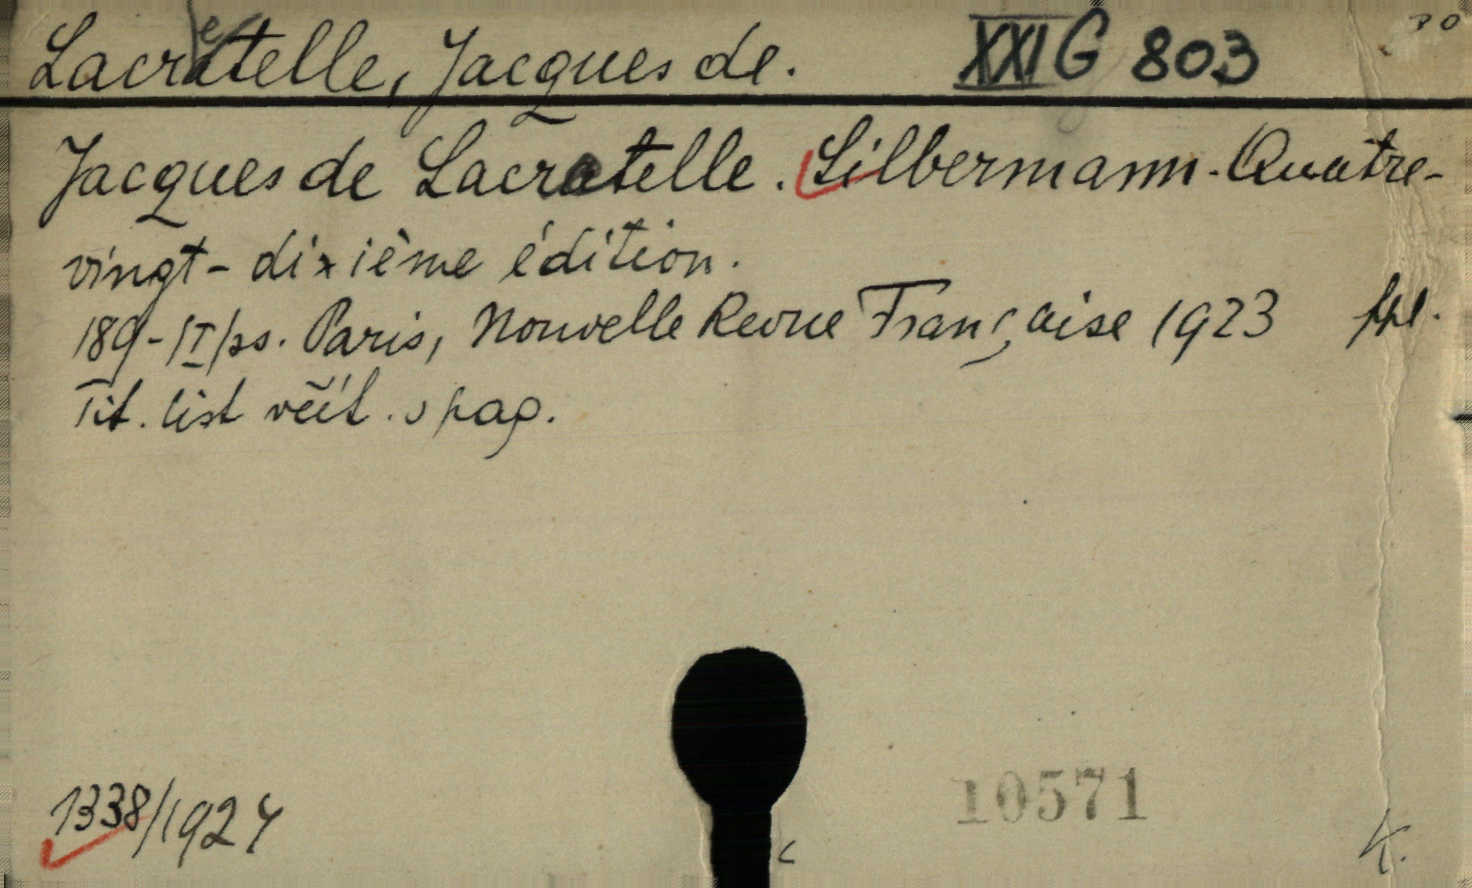 Lacretelle, Jacques de. XXI G 803
Jacques de Lacratelle. Silbermann. Quatre-
vingt-dixième édition.
189-/I/ ss. Paris, Nouvelle Revue Française 1923 ppl.
Tit. list včít. v pag.
1338/1924
10571
K.